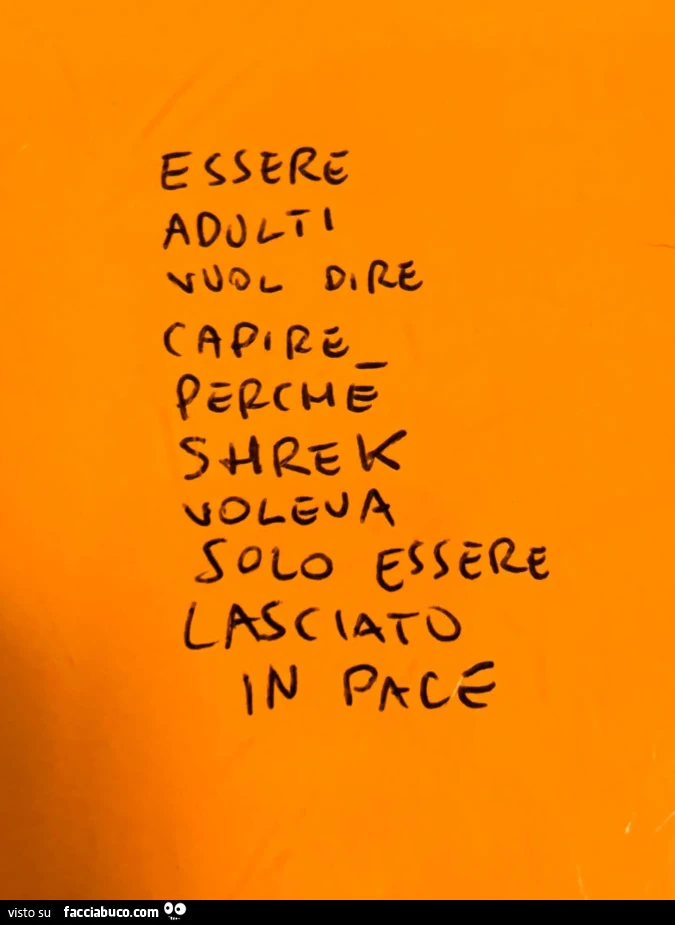 ESSERE
ADULTI
VUOL DIRE
CAPIRE_
PERCHE
SHREK
VOLEVA
SOLO ESSERE
LASCIATO
IN PACE
visto su facciabuco.com